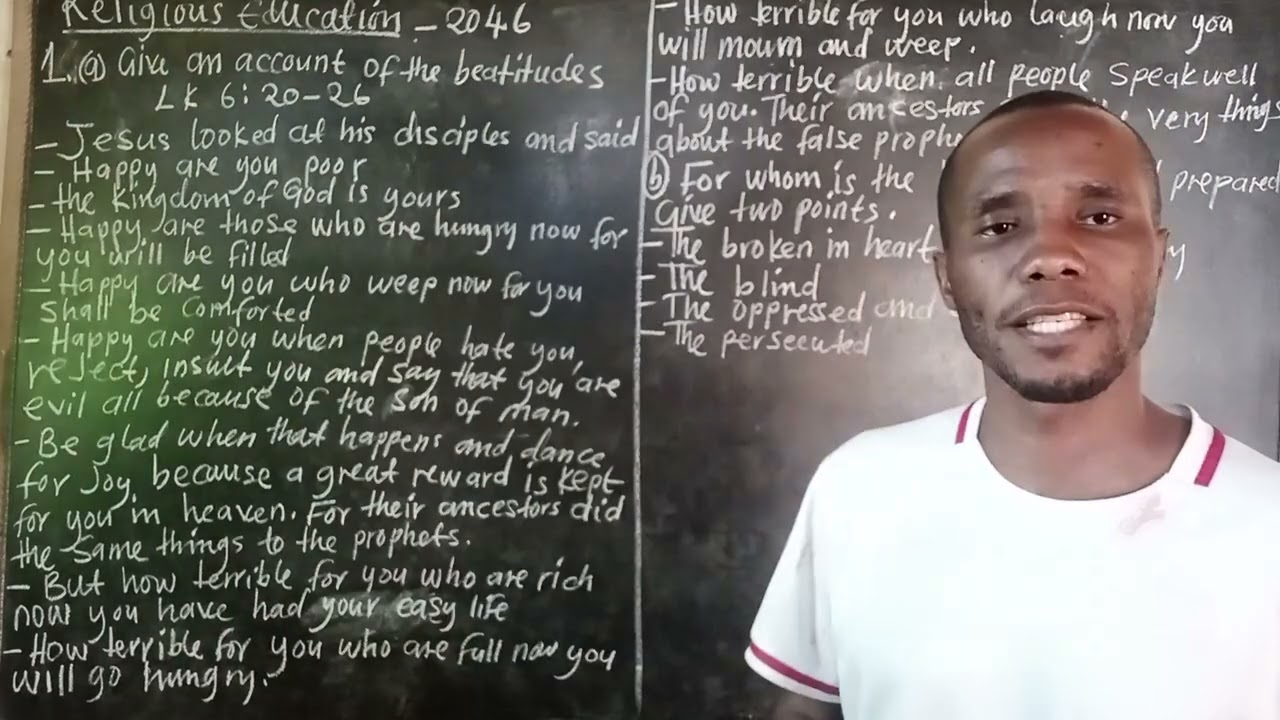 Religious Education - 2046
1. (a) Give an account of the beatitudes
LK 6: 20-26
- Jesus looked at his disciples and said
- Happy are you poor
- the Kingdom of God is yours
- Happy are those who are hungry now for
you will be filled
- Happy are you who weep now for you
shall be comforted
- Happy are you when people hate you,
reject, insult you and say that you are
evil all because of the son of man.
- Be glad when that happens and dance
for Joy, because a great reward is kept
for you in heaven. For their ancestors did
the same things to the prophets.
- But how terrible for you who are rich
now you have had your easy life
- How terrible for you who are full now you
will go hungry.
- How terrible for you who laugh now you
will mourn and weep.
- How terrible when all people speak well
of you. Their ancestors very things
about the false
(b) For whom is the prepared
Give two points.
- The broken in heart
- The blind
- The oppressed and
- The persecuted